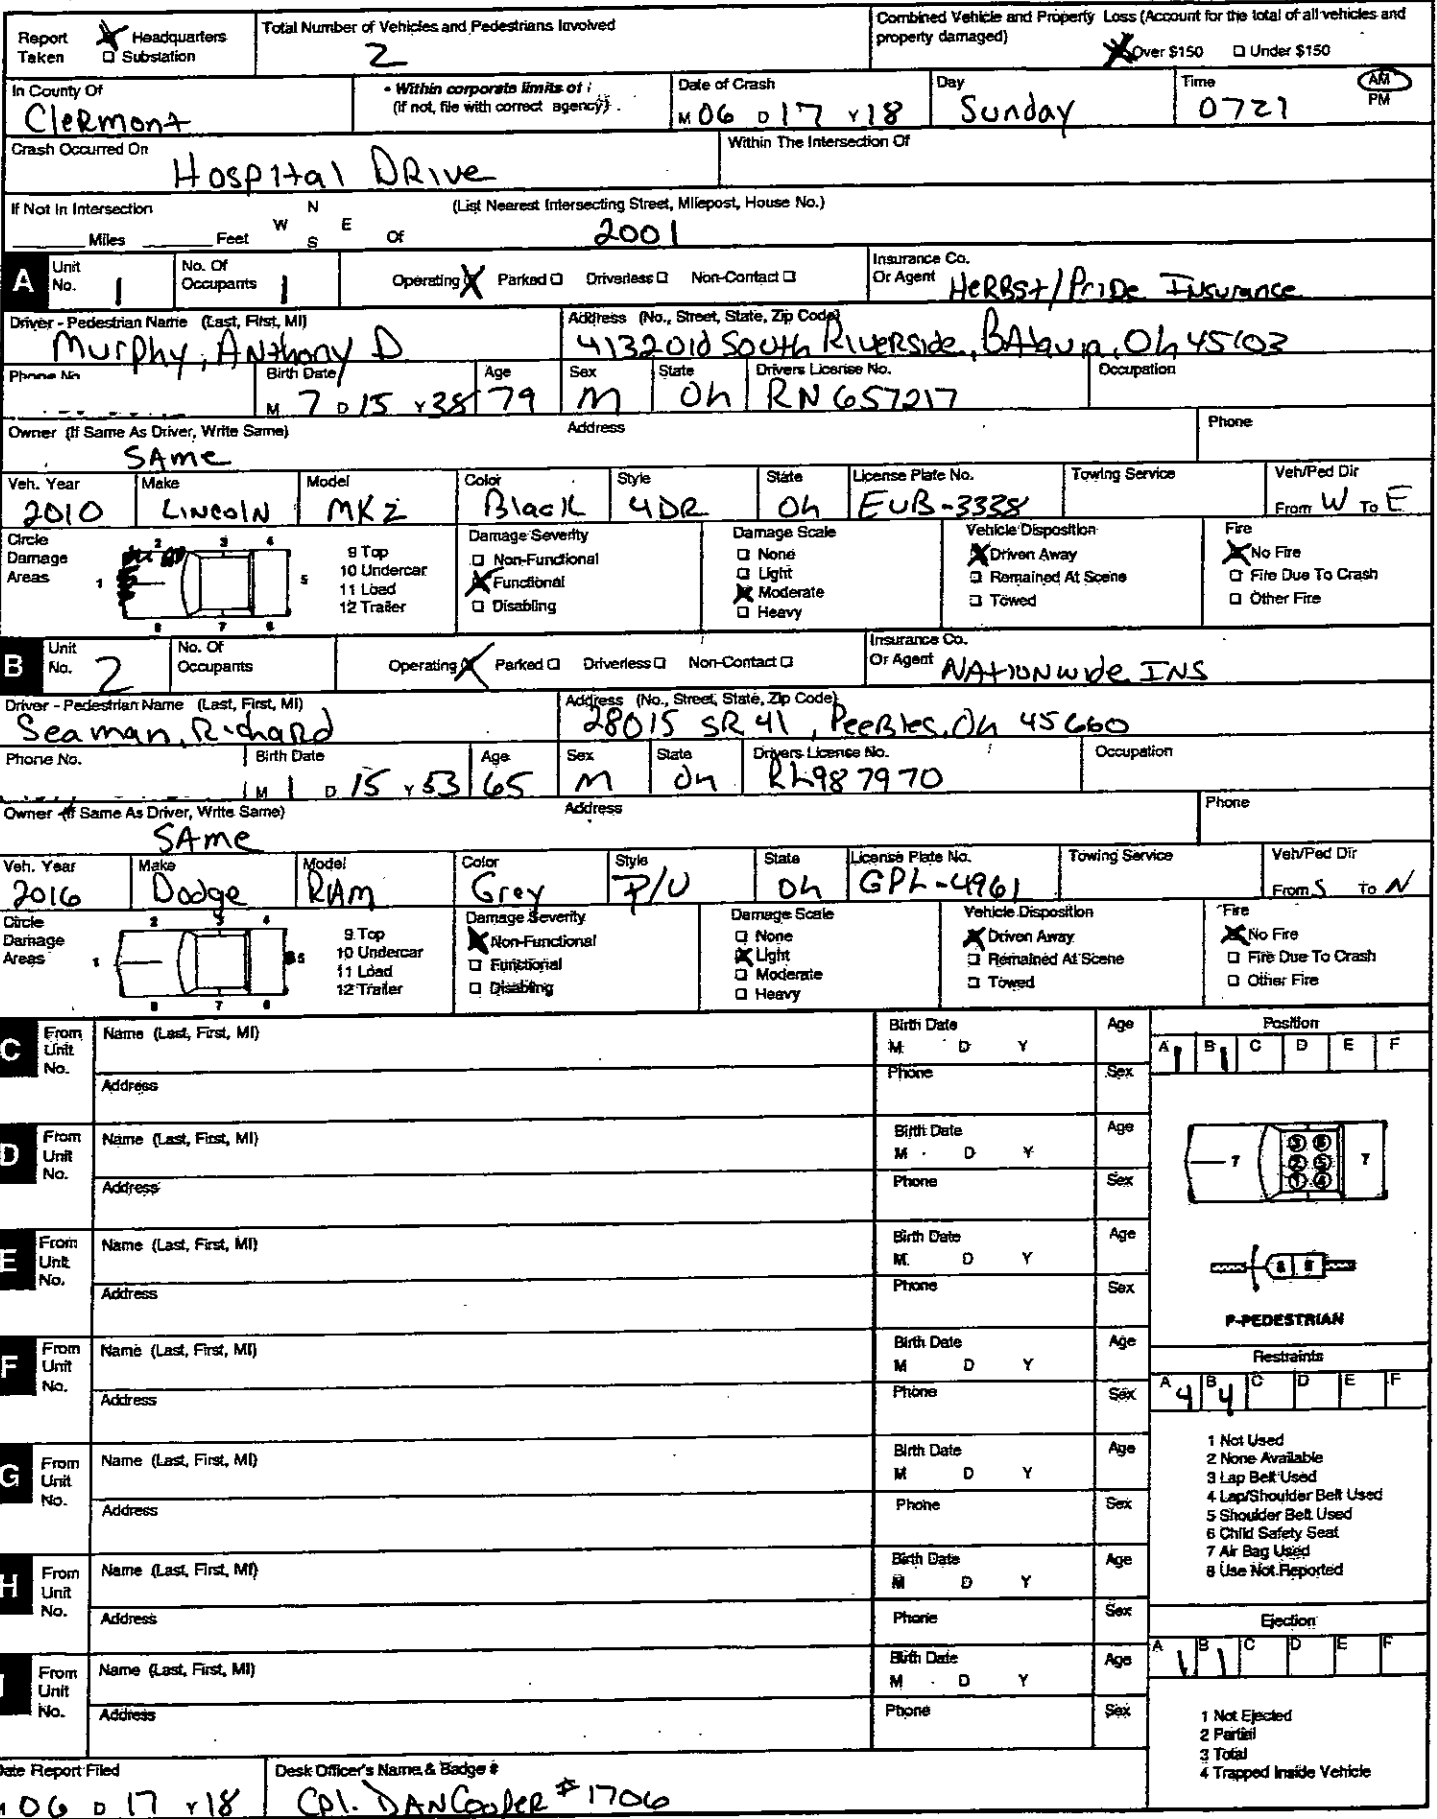 Report Taken Headquarters Substation
Total Number of Vehicles and Pedestrians Involved
2
Combined Vehicle and Property Loss (Account for the total of all vehicles and property damaged)
Over $150 Under $150
In County Of
Clermont
• Within corporate limits of :
(if not, file with correct agency)
Date of Crash
M 06 D 17 Y 18
Day
Sunday
Time
0721
AM
PM
Crash Occurred On
Hospital Drive
Within The Intersection Of
If Not In Intersection
Miles Feet
N
W E
S
Of
(List Nearest Intersecting Street, Milepost, House No.)
2001
A
Unit No. 1
No. Of Occupants 1
Operating Parked Driverless Non-Contact
Insurance Co. Or Agent Herbst/Pride Insurance
Driver - Pedestrian Name (Last, First, MI)
Murphy, Anthony D
Address (No., Street, State, Zip Code)
4132 Old South Riverside, Batavia, Oh 45103
Phone No.
Birth Date
M 7 D 15 Y 38
Age
79
Sex
M
State
Oh
Drivers License No.
RN657217
Occupation
Owner (If Same As Driver, Write Same)
Same
Address
Phone
Veh. Year
2010
Make
Lincoln
Model
MKZ
Color
Black
Style
4DR
State
Oh
License Plate No.
EUB-3338
Towing Service
Veh/Ped Dir
From W To E
Circle Damage Areas
1 2 3 4 5 6 7 8
9 Top
10 Undercar
11 Load
12 Trailer
Damage Severity
Non-Functional
Functional
Disabling
Damage Scale
None
Light
Moderate
Heavy
Vehicle Disposition
Driven Away
Remained At Scene
Towed
Fire
No Fire
Fire Due To Crash
Other Fire
B
Unit No. 2
No. Of Occupants
Operating Parked Driverless Non-Contact
Insurance Co. Or Agent Nationwide INS
Driver - Pedestrian Name (Last, First, MI)
Seaman, Richard
Address (No., Street, State, Zip Code)
28015 SR 41, Peebles, Oh 45660
Phone No.
Birth Date
M 1 D 15 Y 53
Age
65
Sex
M
State
Oh
Drivers License No.
RL987970
Occupation
Owner (If Same As Driver, Write Same)
Same
Address
Phone
Veh. Year
2016
Make
Dodge
Model
RAM
Color
Grey
Style
P/U
State
Oh
License Plate No.
GPL-4961
Towing Service
Veh/Ped Dir
From S To N
Circle Damage Areas
1 2 3 4 5 6 7 8
9 Top
10 Undercar
11 Load
12 Trailer
Damage Severity
Non-Functional
Functional
Disabling
Damage Scale
None
Light
Moderate
Heavy
Vehicle Disposition
Driven Away
Remained At Scene
Towed
Fire
No Fire
Fire Due To Crash
Other Fire
C
From Unit No.
Name (Last, First, MI)
Birth Date
M D Y
Age
Address
Phone
Sex
Position
A 1 B 1 C D E F
D
From Unit No.
Name (Last, First, MI)
Birth Date
M D Y
Age
Address
Phone
Sex
7 3 6 2 5 1 4 7
E
From Unit No.
Name (Last, First, MI)
Birth Date
M D Y
Age
Address
Phone
Sex
P-PEDESTRIAN
F
From Unit No.
Name (Last, First, MI)
Birth Date
M D Y
Age
Address
Phone
Sex
Restraints
A 4 B 4 C D E F
1 Not Used
2 None Available
3 Lap Belt Used
4 Lap/Shoulder Belt Used
5 Shoulder Belt Used
6 Child Safety Seat
7 Air Bag Used
8 Use Not Reported
G
From Unit No.
Name (Last, First, MI)
Birth Date
M D Y
Age
Address
Phone
Sex
H
From Unit No.
Name (Last, First, MI)
Birth Date
M D Y
Age
Address
Phone
Sex
Ejection
A 1 B 1 C D E F
1 Not Ejected
2 Partial
3 Total
4 Trapped Inside Vehicle
I
From Unit No.
Name (Last, First, MI)
Birth Date
M D Y
Age
Address
Phone
Sex
Date Report Filed
06 D 17 Y 18
Desk Officer's Name & Badge #
Cpl. Dan Cooper #1706